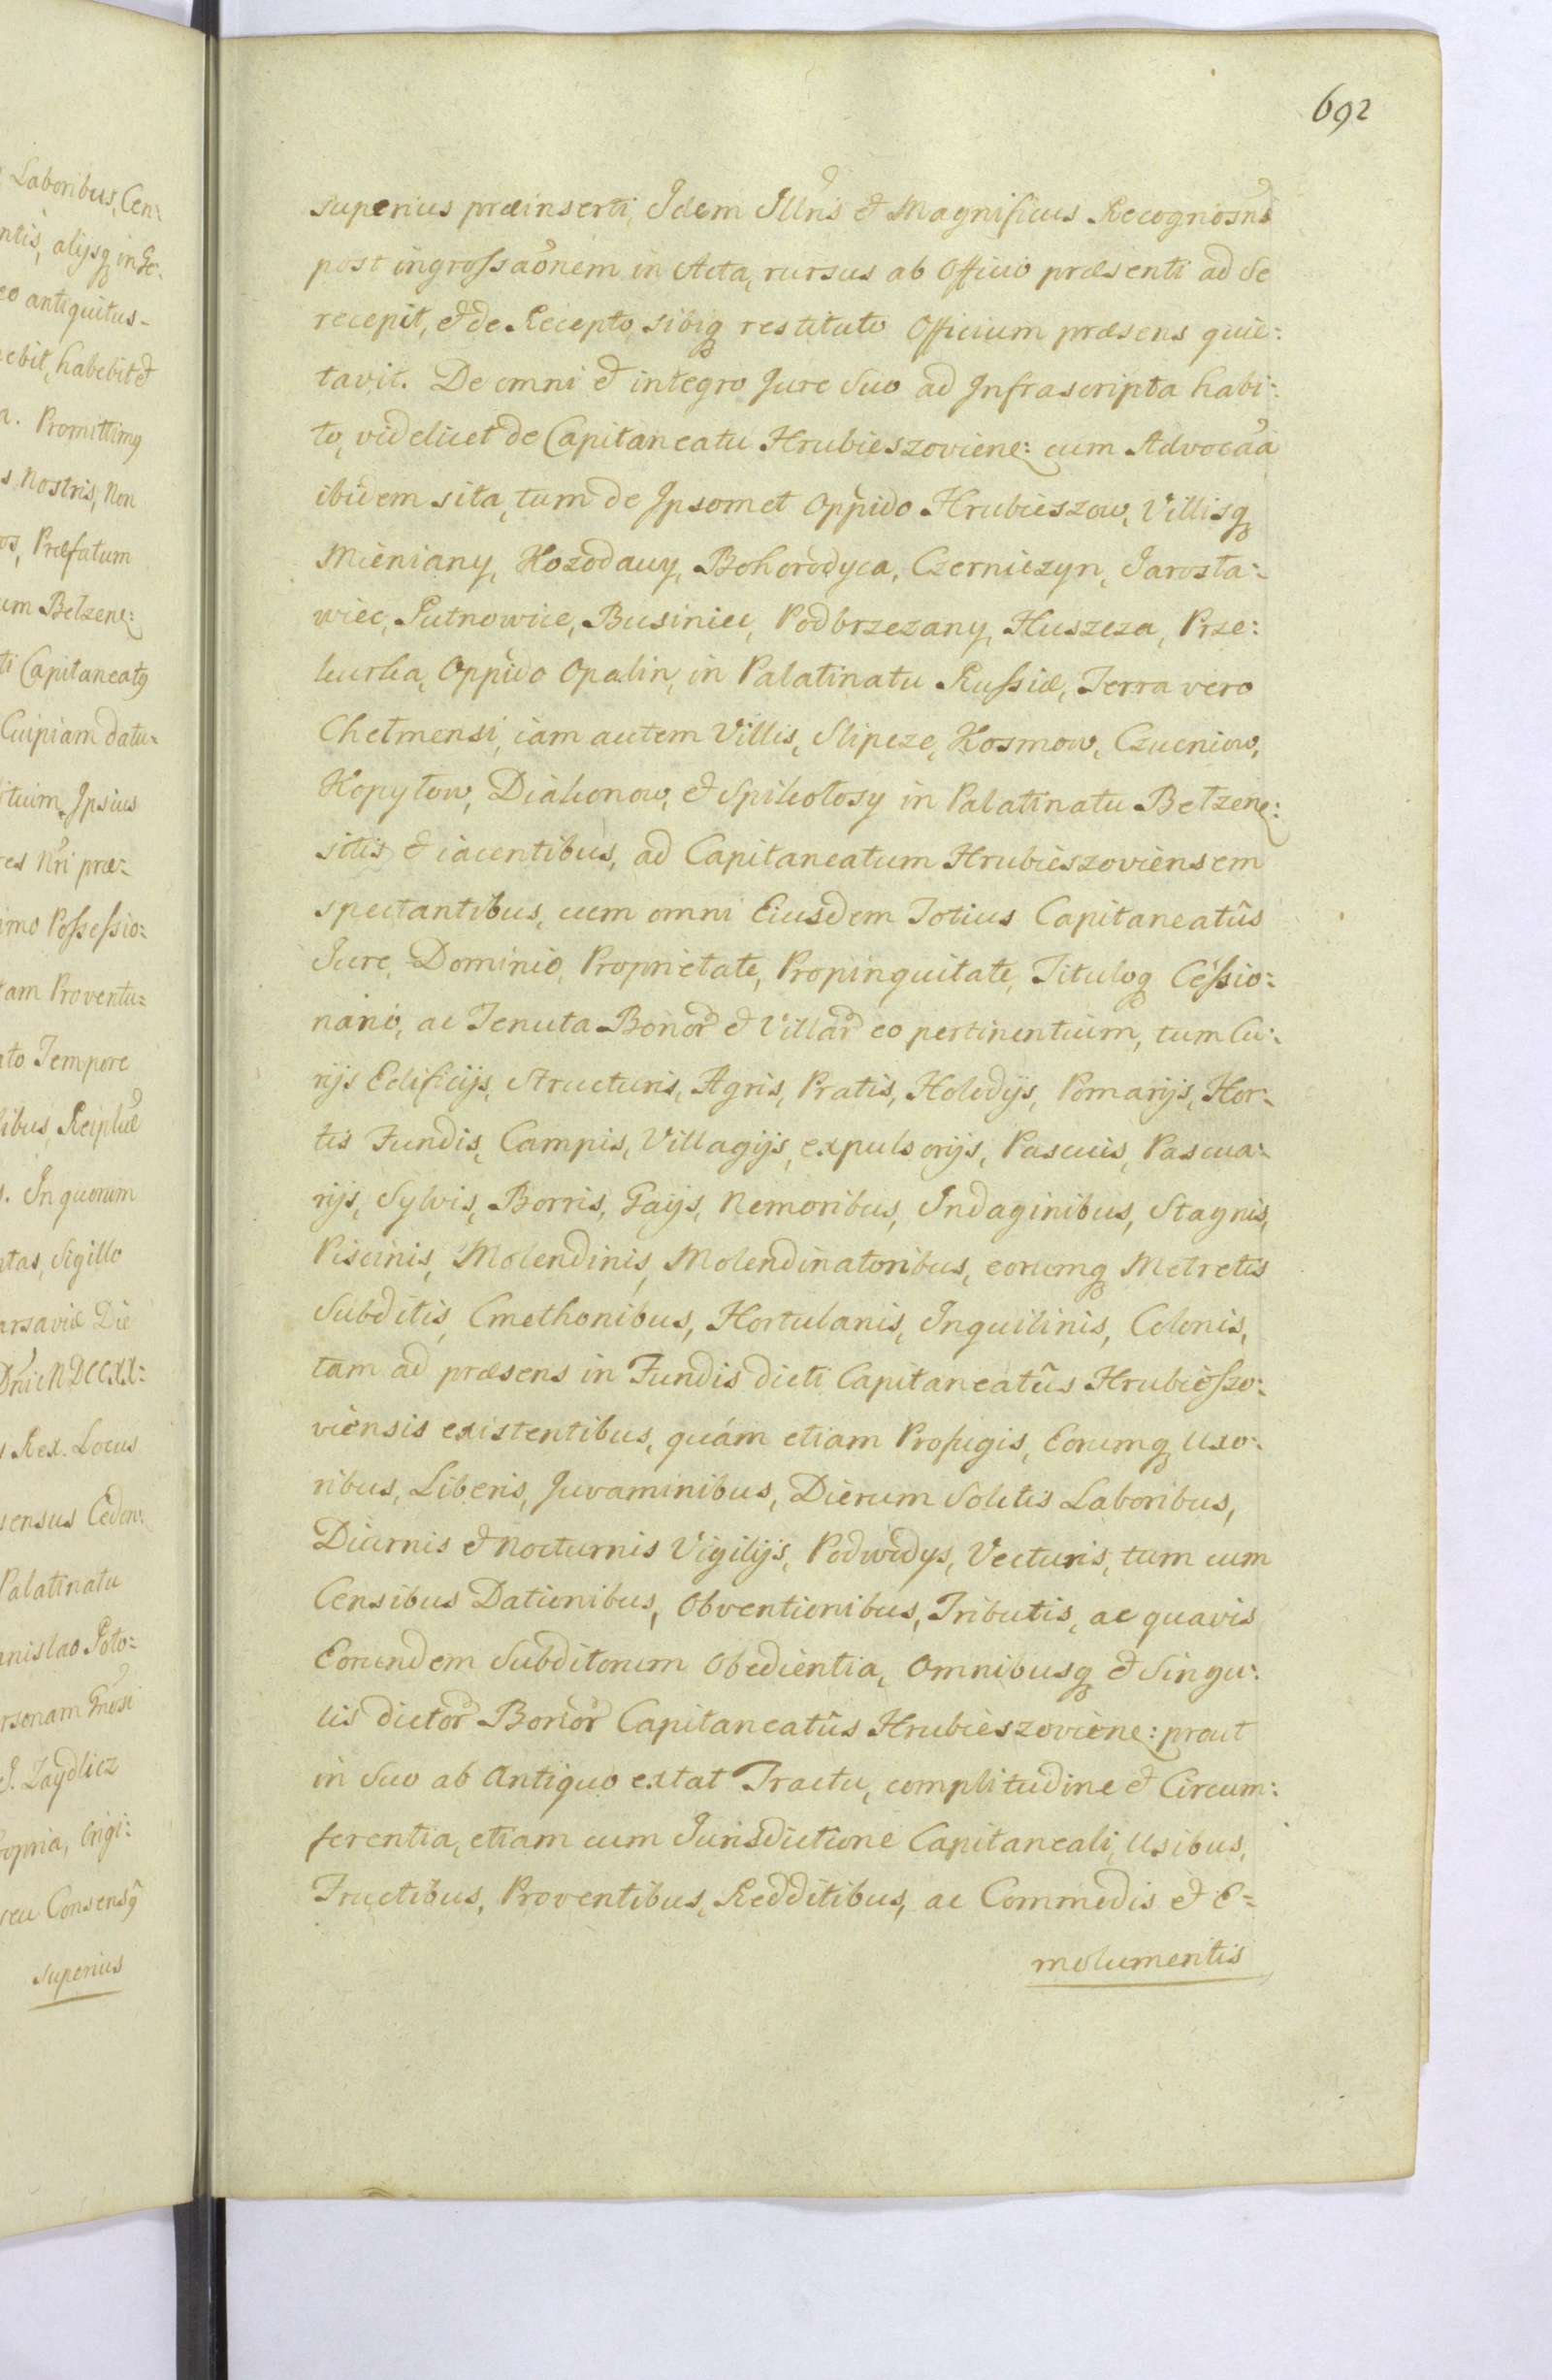 692
superius præinserti, Idem Illris et Magnificus Recognoscns
post ingrossaõnem in Acta, rursus ab Officio præsenti ad Se
recepit, et de Recepto, sibiq restituto Officium præsens quie:
tavit. De omni et integro Jure Suo ad Infrascripta habi:
to, videlicet de Capitaneatu Hrubieszoviene: cum Advocaã
ibidem sita, tum de Ipsomet Oppido Hrubieszow, Villisq
Mieniany, Kozodawy, Bohorodyca, Czerniczyn, Jarosła:
wiec, Putnowice, Businiec, Podbrzezany, Huszcza, Prze:
kurka, Oppido Opalin, in Palatinatu Russiæ, Terra vero
Chełmensi, iam autem Villis, Slipcze, Kosmow, Czueniow,
Kopyłow, Diakonow, et Spikołosy in Palatinatu Bełzene:
sitis et iacentibus, ad Capitaneatum Hrubieszoviensem
spectantibus, cum omni Eiusdem Totius Capitaneatûs
Jure, Dominio, Proprietate, Propinquitate, Tituloq Cessio:
nario, ac Tenuta Bonor et Villar eo pertinentium, tum Cu:
rijs Edificijs, Structuris, Agris, Pratis, Holedijs, Pomarijs, Hor:
tis Fundis, Campis, Villagijs, expulsorijs, Pascuis, Pascua:
rijs, Sylvis, Borris, Gaijs, Nemoribus, Indaginibus, Stagnis,
Piscinis, Molendinis, Molendinatoribus, eorumq Metretis
Subditis, Cmethonibus, Hortulanis, Inquilinis, Colonis,
tam ad præsens in Fundis dicti Capitaneatûs Hrubieszo:
viensis existentibus, quám etiam Profugis, Eorumq Uxo:
ribus, Liberis, Juvaminibus, Dierum Solitis Laboribus,
Diurnis et Nocturnis Vigilijs, Podwodys, Vecturis, tum cum
Censibus Dationibus, Obventionibus, Tributis, ac quavis
Eorundem Subditorum Obedientia, Omnibusq et Singu:
lis dictor Bonor Capitaneatûs Hrubieszoviene: prout
in Suo ab Antiquo extat Tractu, complitudine et Circum:
ferentia, etiam cum Jurisdictione Capitaneali, Usibus,
Fructibus, Proventibus, Redditibus, ac Commodis et E=
molumentis
Laboribus, Cen:
ntis, alijsq in Ge:
eo antiquitus
ebit, habebit et
a. Promittimq
s Nostris, Non
os, Præfatum
um Bełzene:
ti Capitaneatq
Cuipiam datu:
Ipsius
res Nri præ:
imo Possessio:
tam Proventu:
ato Tempore
libus Reiplcæ
s. In quorum
atas, Sigillo
arsaviæ Die
Dni MDCCXX:
s Rex. Locus
sensus Cedon:
Palatinatu
anislao Poto:
rsonam Gnosi
J. Zaydlicz
ropria, Origi:
seu Consensq
superius